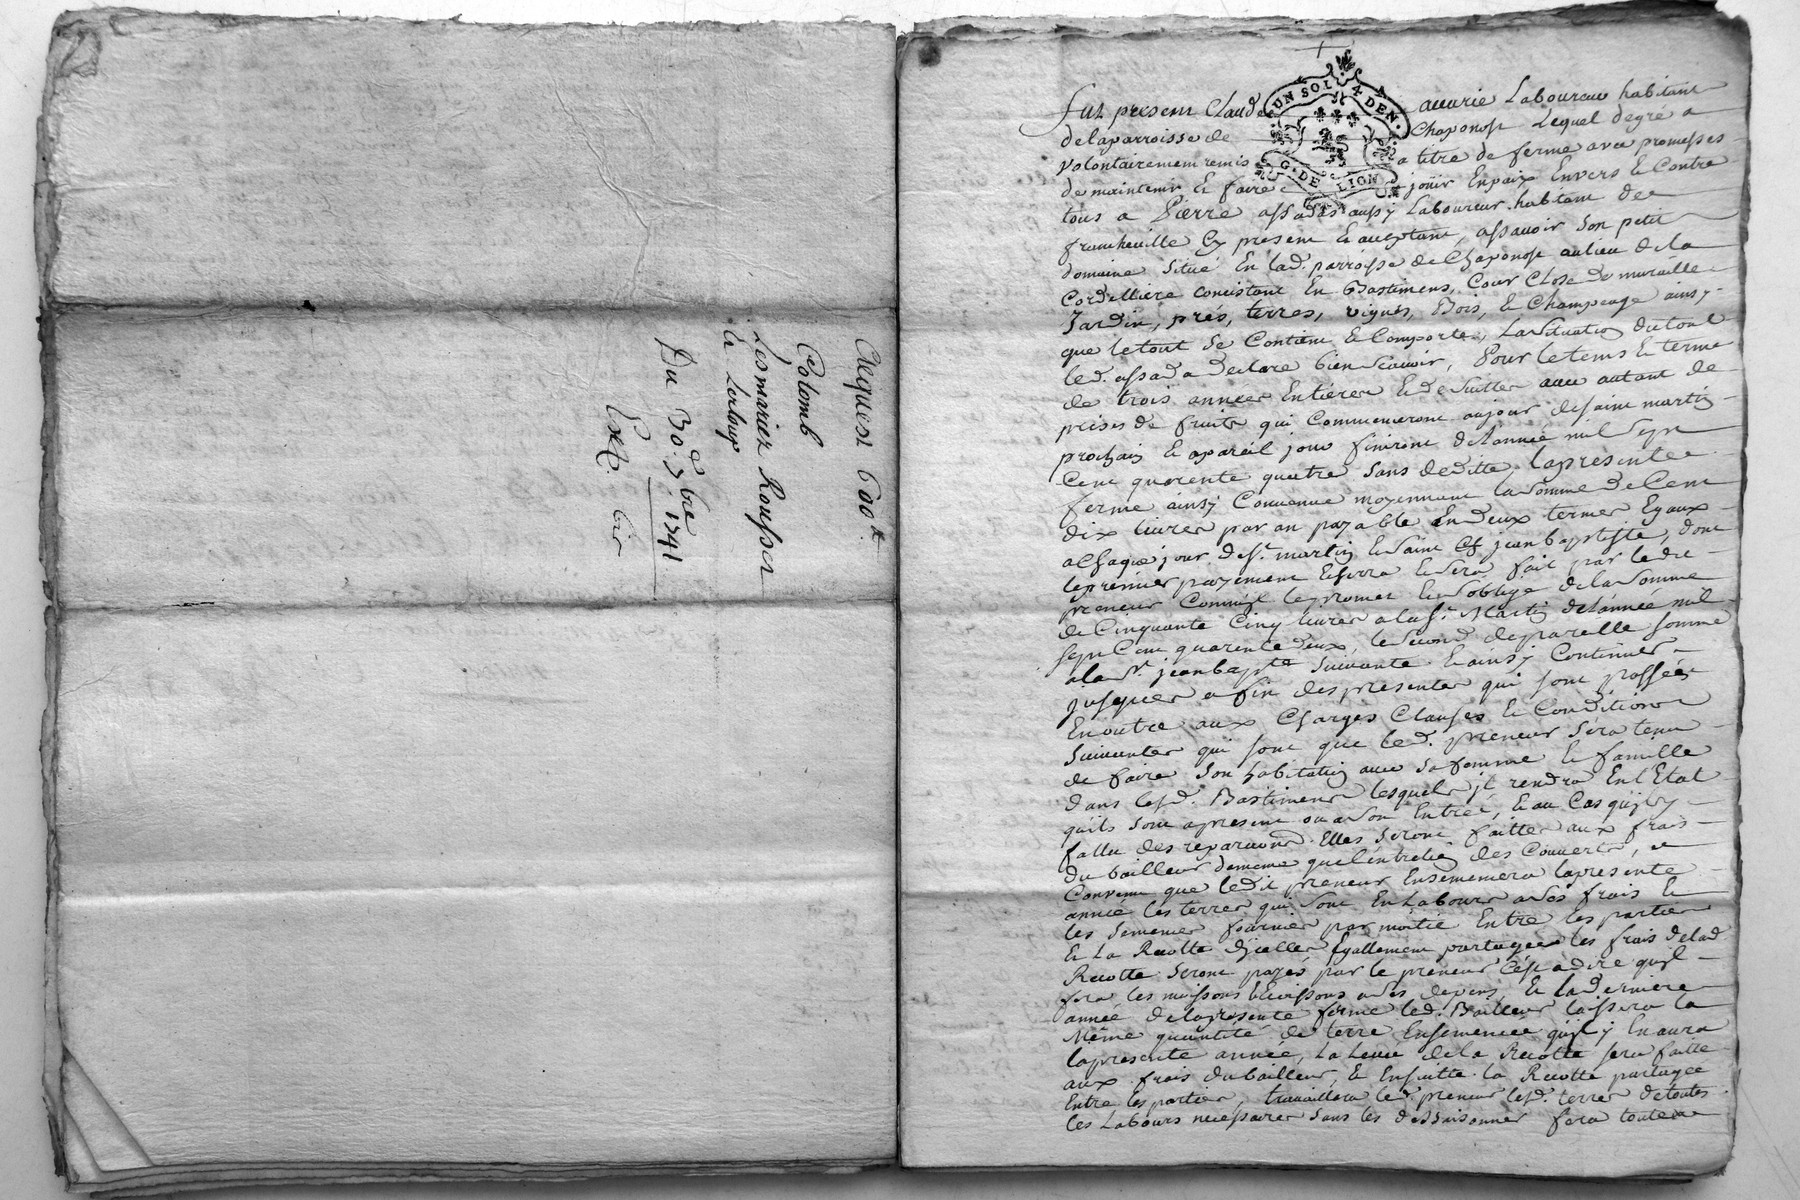 Acquest 600tt.
Colomb
Les mariez Rousset
a Leloup
Du 30.e 9bre 1741
Extt.
UN SOL 4 DEN.
G. DE LION
Fut present Claude auurie Laboureur habitant
de la parroisse de Chaponost Lequel degré a
volontairement remis a titre de ferme avec promesses
de maintenir & faire joüir En paix Envers & Contre
tous a Pierre assada aussy Laboureur habitant de
francheuille Cy present & acceptant, assauoir Son petit
domaine Situé En lad. parroisse de Chaponost au lieu de la
Cordelliere Concistant En Bastimens, Cour Close de muraille
Jardin, prés, terres, vignes, Bois, & Champeage ainsy
que le tout Se Contient & Comporte, La Situation du tout
led. assada declare bien Scauoir, Pour le tems & terme
de trois années Entieres & de Suitte auec autant de
prises de fruits qui Commenceront au jour de saint martin
prochain & a pareil jour finiront de l'année mil Sept
Cent quarente quatre Sans deditte, la presente
ferme ainsy Conuenue moyennant la Somme de Cent
dix liures par an payable En deux termes Egaux
a Chaque jour de St. martin & Saint jean baptiste, dont
le premier payement Escherra & Sera fait par ledit
preneur Comme il le promet & S'oblige de la Somme
de Cinquante Cinq liures a la St. Martin de l'année mil
Sept Cent quarente deux, le Second de pareille Somme
a la St. jean bapte Suiuante & ainsy Continuer
jusques a fin des presentes qui Sont passées
En outre aux Charges Clauses & Conditions
Suiuantes qui Sont que led. preneur Sera tenu
de faire Son habitation auec Sa femme & famille
dans lesd. Bastimens lesquels jl rendra En l'Etat
quils Sont a present ou a Son Entrée, & au Cas qu'il y
fallu des reparations Elles Seront faittes aux frais
du bailleur de meme que l'entretien des Couuerts,
Conuenu que ledit preneur Ensemencera la presente
année les terres qui Sont En Labours a Ses frais &
les Semences fournies par moitié Entre les parties
& La Recolte d'jcelles Egallement partagée les frais de lad.
Recolte Seront payés par le preneur C'est a dire qu'jl
fera les moissons & Eissons a Ses depens, & la derniere
année de la presente ferme led. Bailleur laissera la
Même quantité de terre Ensemencée qu'jl y En aura
la presente année, La Leuée de la Recolte Sera faitte
aux frais du bailleur, & Ensuitte la Recolte partagée
Entre les parties, trauaillera led. preneur lesd. terres de toutes
les Labours necessaires Sans les dessaisonner fera toutes